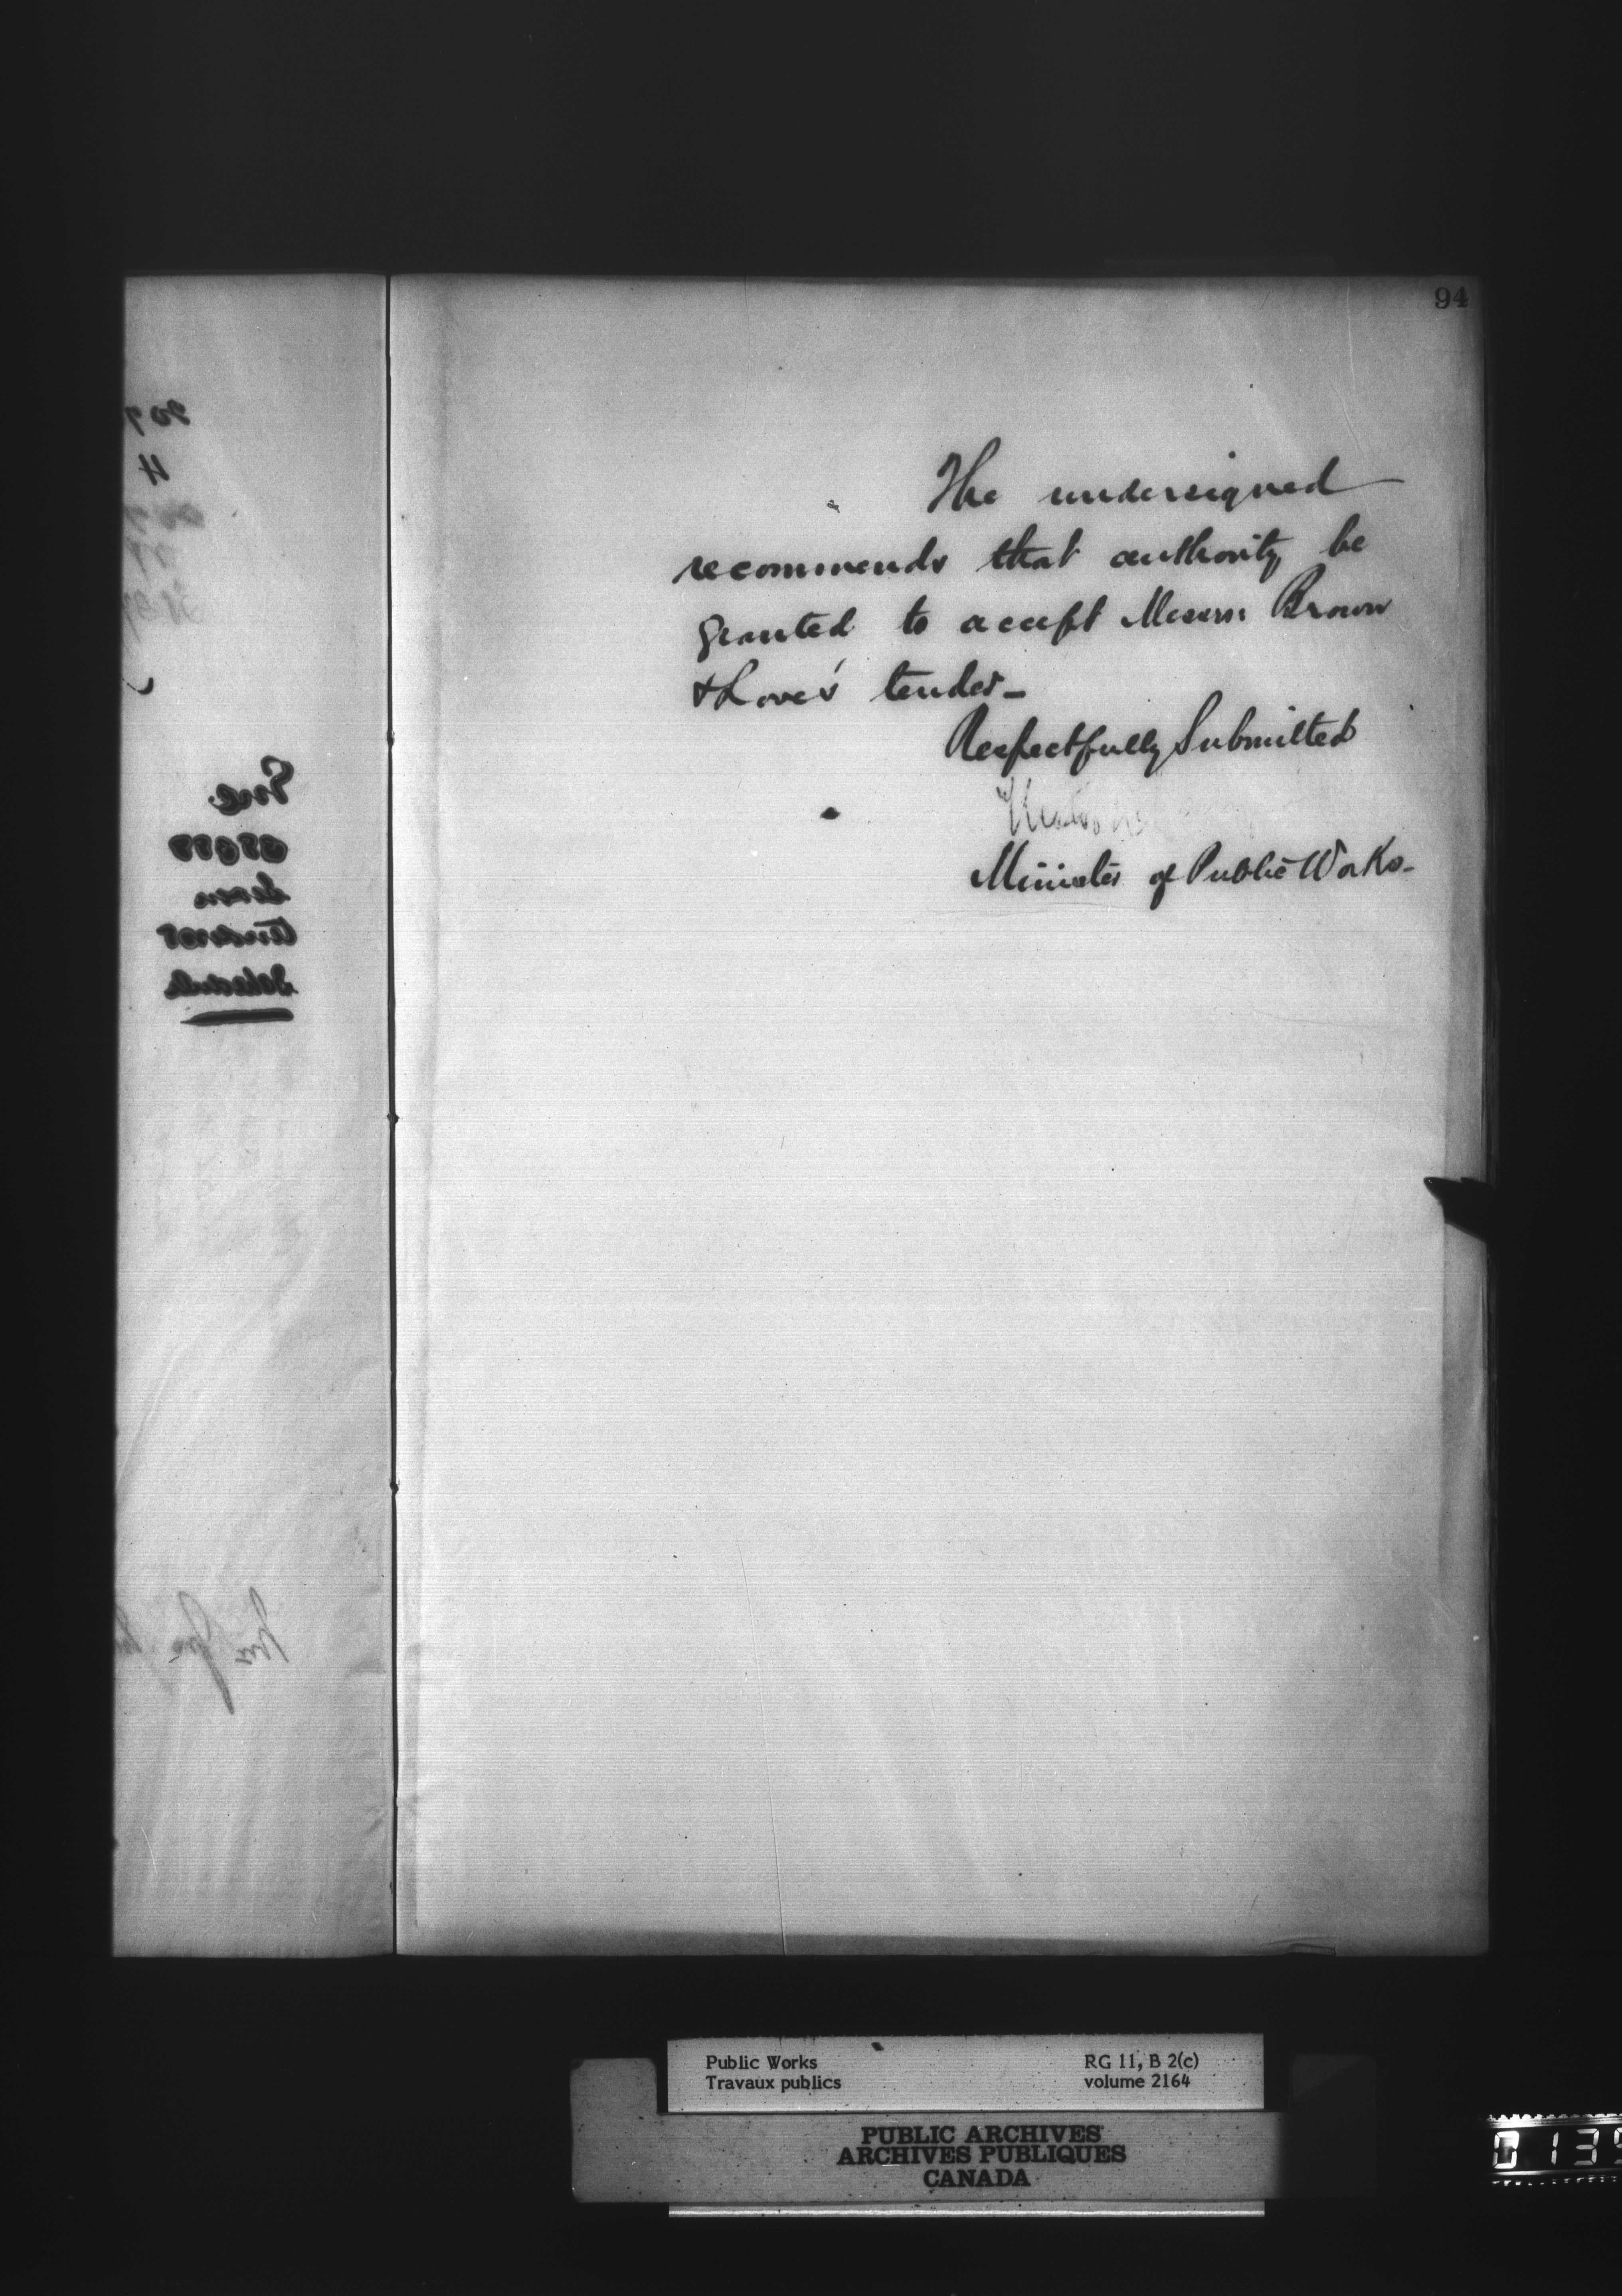 94
The undersigned
recommends that authority be
granted to accept Messrs Brown
& Love's tender_
Respectfully Submitted
Minister of Public Works_
Enc
88088
seven
tenders
Schedule
Public Works
Travaux publics
RG 11, B 2(c)
volume 2164
PUBLIC ARCHIVES
ARCHIVES PUBLIQUES
CANADA